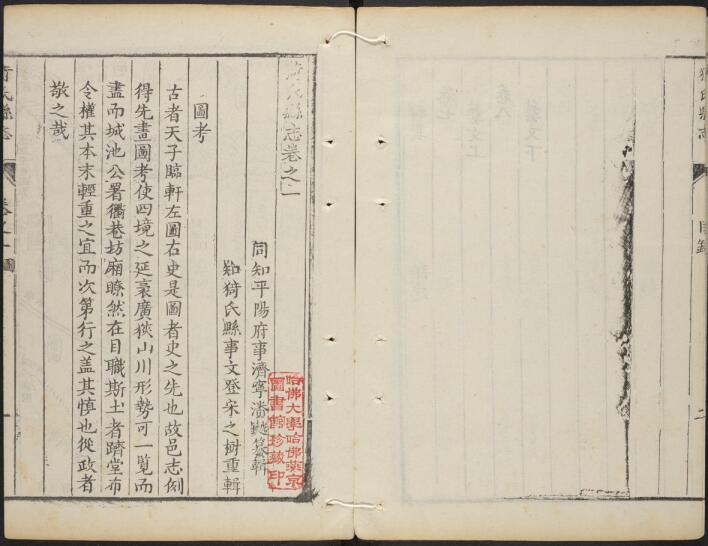 猗氏縣志
目錄
二
猗氏縣志卷之一
同知平陽府事濟寧潘鉞纂輯
知猗氏縣事文登宋之樹重輯
圖考
古者天子臨軒左圖右史是圖者史之先也故邑志例
得先畫圖考使四境之延袤廣狹山川形勢可一覽而
盡而城池公署衢巷坊廂瞭然在目職斯土者躋堂布
令權其本末輕重之宜而次第行之盖其慎也從政者
敬之哉
猗氏縣志
卷之一
圖
一
哈佛大學哈佛燕京
圖書館珍藏印